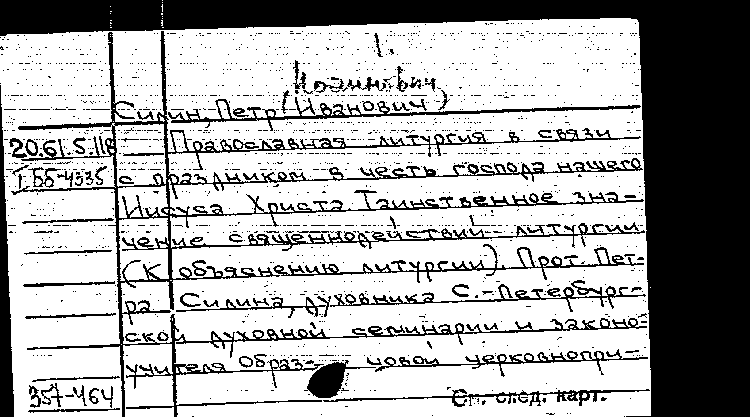 1.
Иоаннович,
Силин, Петр (Иванович)
20.61.5.118 Православная литургия в связи
I ББ-4335 с праздником в честь господа нашего
Иисуса Христа Таинственное зна-
чение священнодействий литургии
(К объяснению литургии). Прот. Пет-
ра Силина, духовника С.-Петербург-
ской духовной семинарии и законо-
учителя Образ- цовой церковнопри-
357-464 См. след. карт.